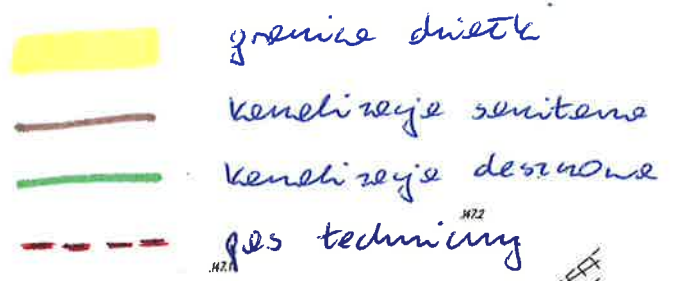 granica działki
kanalizacja sanitarna
kanalizacja deszczowa
147.2
gaz techniczny
147.1